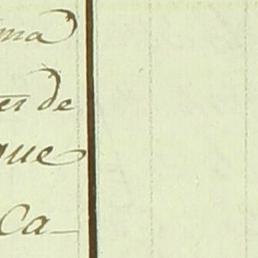 ma
es de
que
Ca-